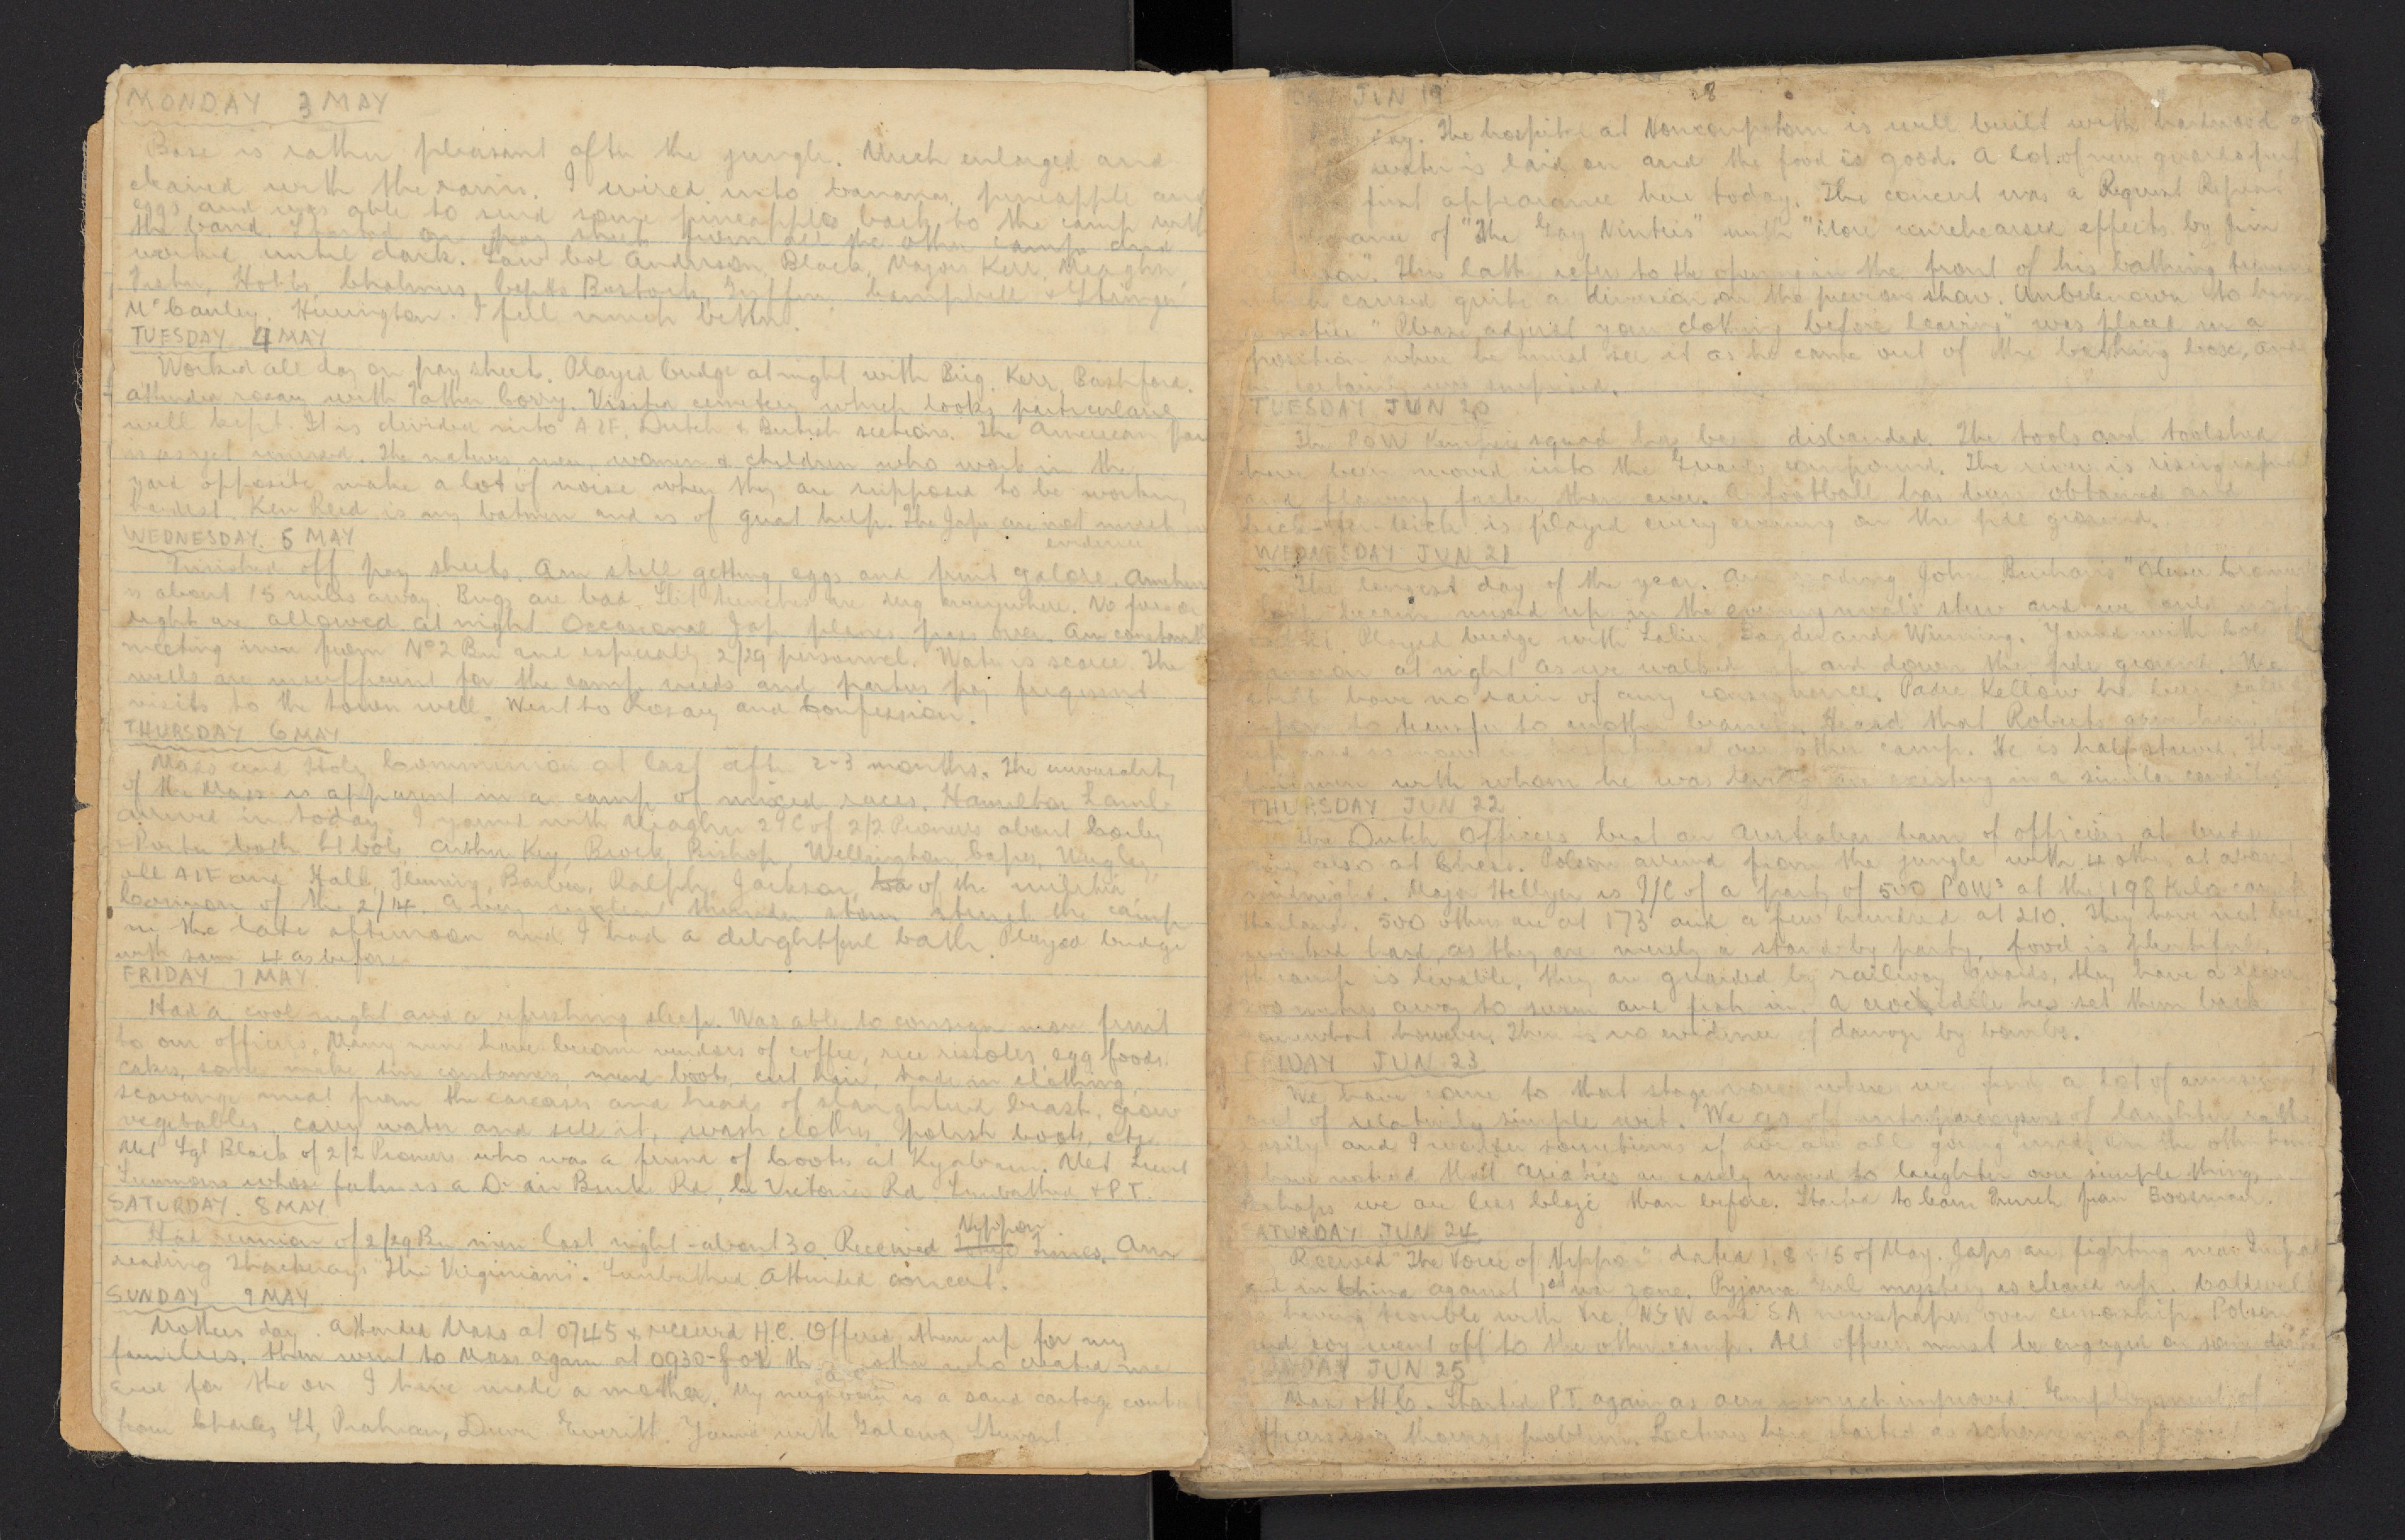 MONDAY 3 MAY
Base is rather pleasant after the jungle. Much enlarged and
cleaned with the rains. I wired into bananas, pineapple and
eggs and was able to send some pineapples back to the camp with
the band. Started on pay sheets from all the other camps and
worked until dark. Saw Col Anderson, Black, Majors Kerr, Meagher,
Hobbs, Chalmers, Capts Bostock, Griffin, Campbell & Stringer
McCauley, Hinington. I feel much better.
TUESDAY 4 MAY
Worked all day on pay sheet. Played bridge at night with Brig, Kerr, Bashford.
Attended rosary with Father Corry. Visited cemetery which looks particularly
well kept. It is divided into AIF, Dutch & British sections. The American
is as yet unused. The natives men, women & children who work in the
yard opposite make a lot of noise when they are supposed to be working
hardest. Ken Reid is my batman and is of great help. The Japs are not much in
evidence
WEDNESDAY 5 MAY
Finished off pay sheets. Am still getting eggs and fruit galore.
is about 15 miles away. Bugs are bad. Slit trenches are dug everywhere. No fires or
light are allowed at night. Occasional Jap planes pass over. Am constantly
meeting men from No 2 Bn and especially 2/29 personnel. Water is scarce. The
wells are insufficient for the camp needs and parties pay frequent
visits to the town well. Went to Rosary and Confession.
THURSDAY 6 MAY
Mass and Holy Communion at last after 2-3 months. The universality
of the Mass is apparent in a camp of mixed races. Hamilton Lamb
arrived in today. I yarned with Meagher 2 I/C of 2/2 Pioneers about
Porter both Lt Cols, Arthur Key, Brock, Bishop, Wellington, Capes,
all AIF and Hall, Fleming, Barber, Ralph, Jackson, of the
of the 2/14. A very violent thunder storm struck the camp
in the late afternoon and I had a delightful bath. Played bridge
with same 4 as before.
FRIDAY 7 MAY.
Had a cool night and a refreshing sleep. Was able to consign more fruit
to our officers. Many men have become vendors of coffee, rice rissoles, egg foods
cakes, some make tin containers, mend boots, cut hair, trade in clothing,
scavenge meat from the carcases and heads of slaughtered beast, grow
vegetables, carry water and sell it, wash clothes, polish boots, etc
Met Sgt Black of 2/2 Pioneers who was a friend of Coots at Kyabram. Met Lieut
whose father is a Dr in Burke Rd, Cr Victoria Rd. Sunbathed & P.T.
SATURDAY. 8 MAY
Had reunion of 2/29 Bn men last night - about 30. Received Nippon Times. Am
reading Thackeray's "The Virginians". Sunbathed. Attended concert.
SUNDAY 9 MAY
Mothers day. Attended Mass at 0745 & received H.C. Offered them up for my
families. Then went to Mass again at 0930 - for the mother who created me
and for the one I have made a mother. My neighbour is a sand cartage
from Charles St, Prahran, Everitt. Yarned with Galena Stewart.
8
JUN 19
day. The hospital at is well built with hardwood
water is laid on and the food is good. A lot of new guards put
first appearance here today. The concert was a Request
of "The Gay Nineties" with "More unrehearsed effects by Jim
The latter refers to the opening in the front of his bathing
caused quite a diversion in the previous show. Unbeknown to him
notice "Please adjust your clothing before leaving" was placed in a
position where he must see it as he came out of the bathing box, and
he certainly was surprised.
TUESDAY JUN 20
The POW squad has been disbanded. The tools and toolshed
have been moved into the Guards compound. The river is rising
and flowing faster than ever. A football has been obtained and
kick-to-kick is played every evening on the pde ground.
WEDNESDAY JUN 21
The longest day of the year. Am reading John Buchan's "Oliver
became mixed up in the evening meal's stew and we
it. Played bridge with Snyder and Winning. Yarned with Col
at night as we walked up and down the pde ground. We
still have no rain of any consequence. Padre Kellow has been
to transfer to another branch. Heard that Roberts
and is now in hospital at our other camp. He is half starved.
men with whom he was are existing in a similar condition
THURSDAY JUN 22
The Dutch Officers beat an Australian team of officers at bridge
also at Chess. Polson arrived from the jungle with 4 others at about
midnight. Major Hellyer is I/C of a party of 500 POWs at the 198 Kilo camp
Thailand. 500 others are at 173 and a few hundred at 210. They have not been
worked hard, as they are merely a stand-by party, food is plentiful,
the camp is livable, they are guarded by railway Guards, they have a river
200 metres away to swim and fish in. A crocodile has set them back
somewhat however. There is no evidence of damage by bombs.
FRIDAY JUN 23
We have come to that stage now where we find a lot of
out of relatively simple wit. We go off into paroxysms of laughter rather
easily and I wonder sometimes if we are all going mad. On the other hand
I have noticed that Asiatics are easily moved to laughter over simple things
Perhaps we are less blasé than before. Started to learn Dutch from
SATURDAY JUN 24
Received "The Voice of Nippon" dated 1, 8 & 15 of May. Japs are fighting near Imphal
and in China against 1st war zone. Pyjama Girl mystery is cleared up.
is having trouble with Vic, NSW and SA newspapers over censorship. Polson
went off to the other camp. All officers must be engaged on some
SUNDAY JUN 25
Mass & H.C. Started P.T. again as am much improved. Employment of
problem. Lectures have started as